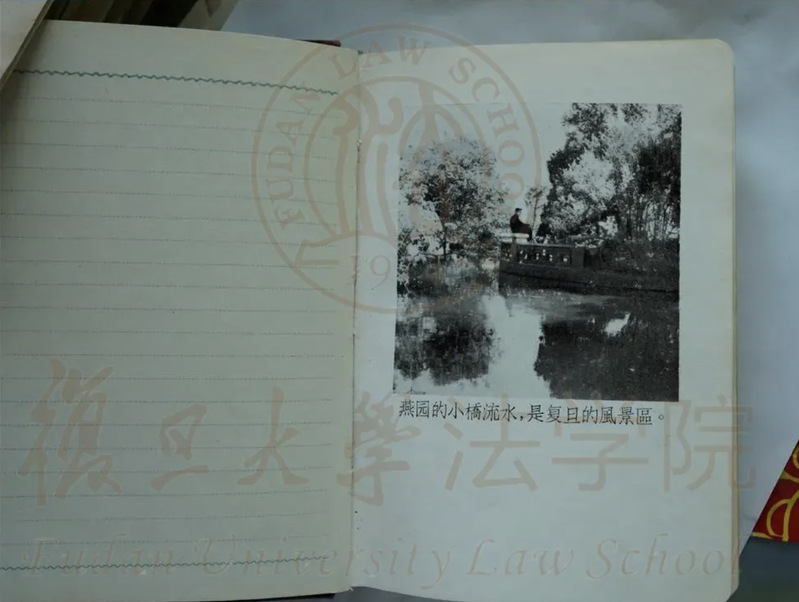 燕园的小橋流水,是复旦的風景區。
FUDAN LAW SCHOOL
復旦大學法学院
Fudan University Law School